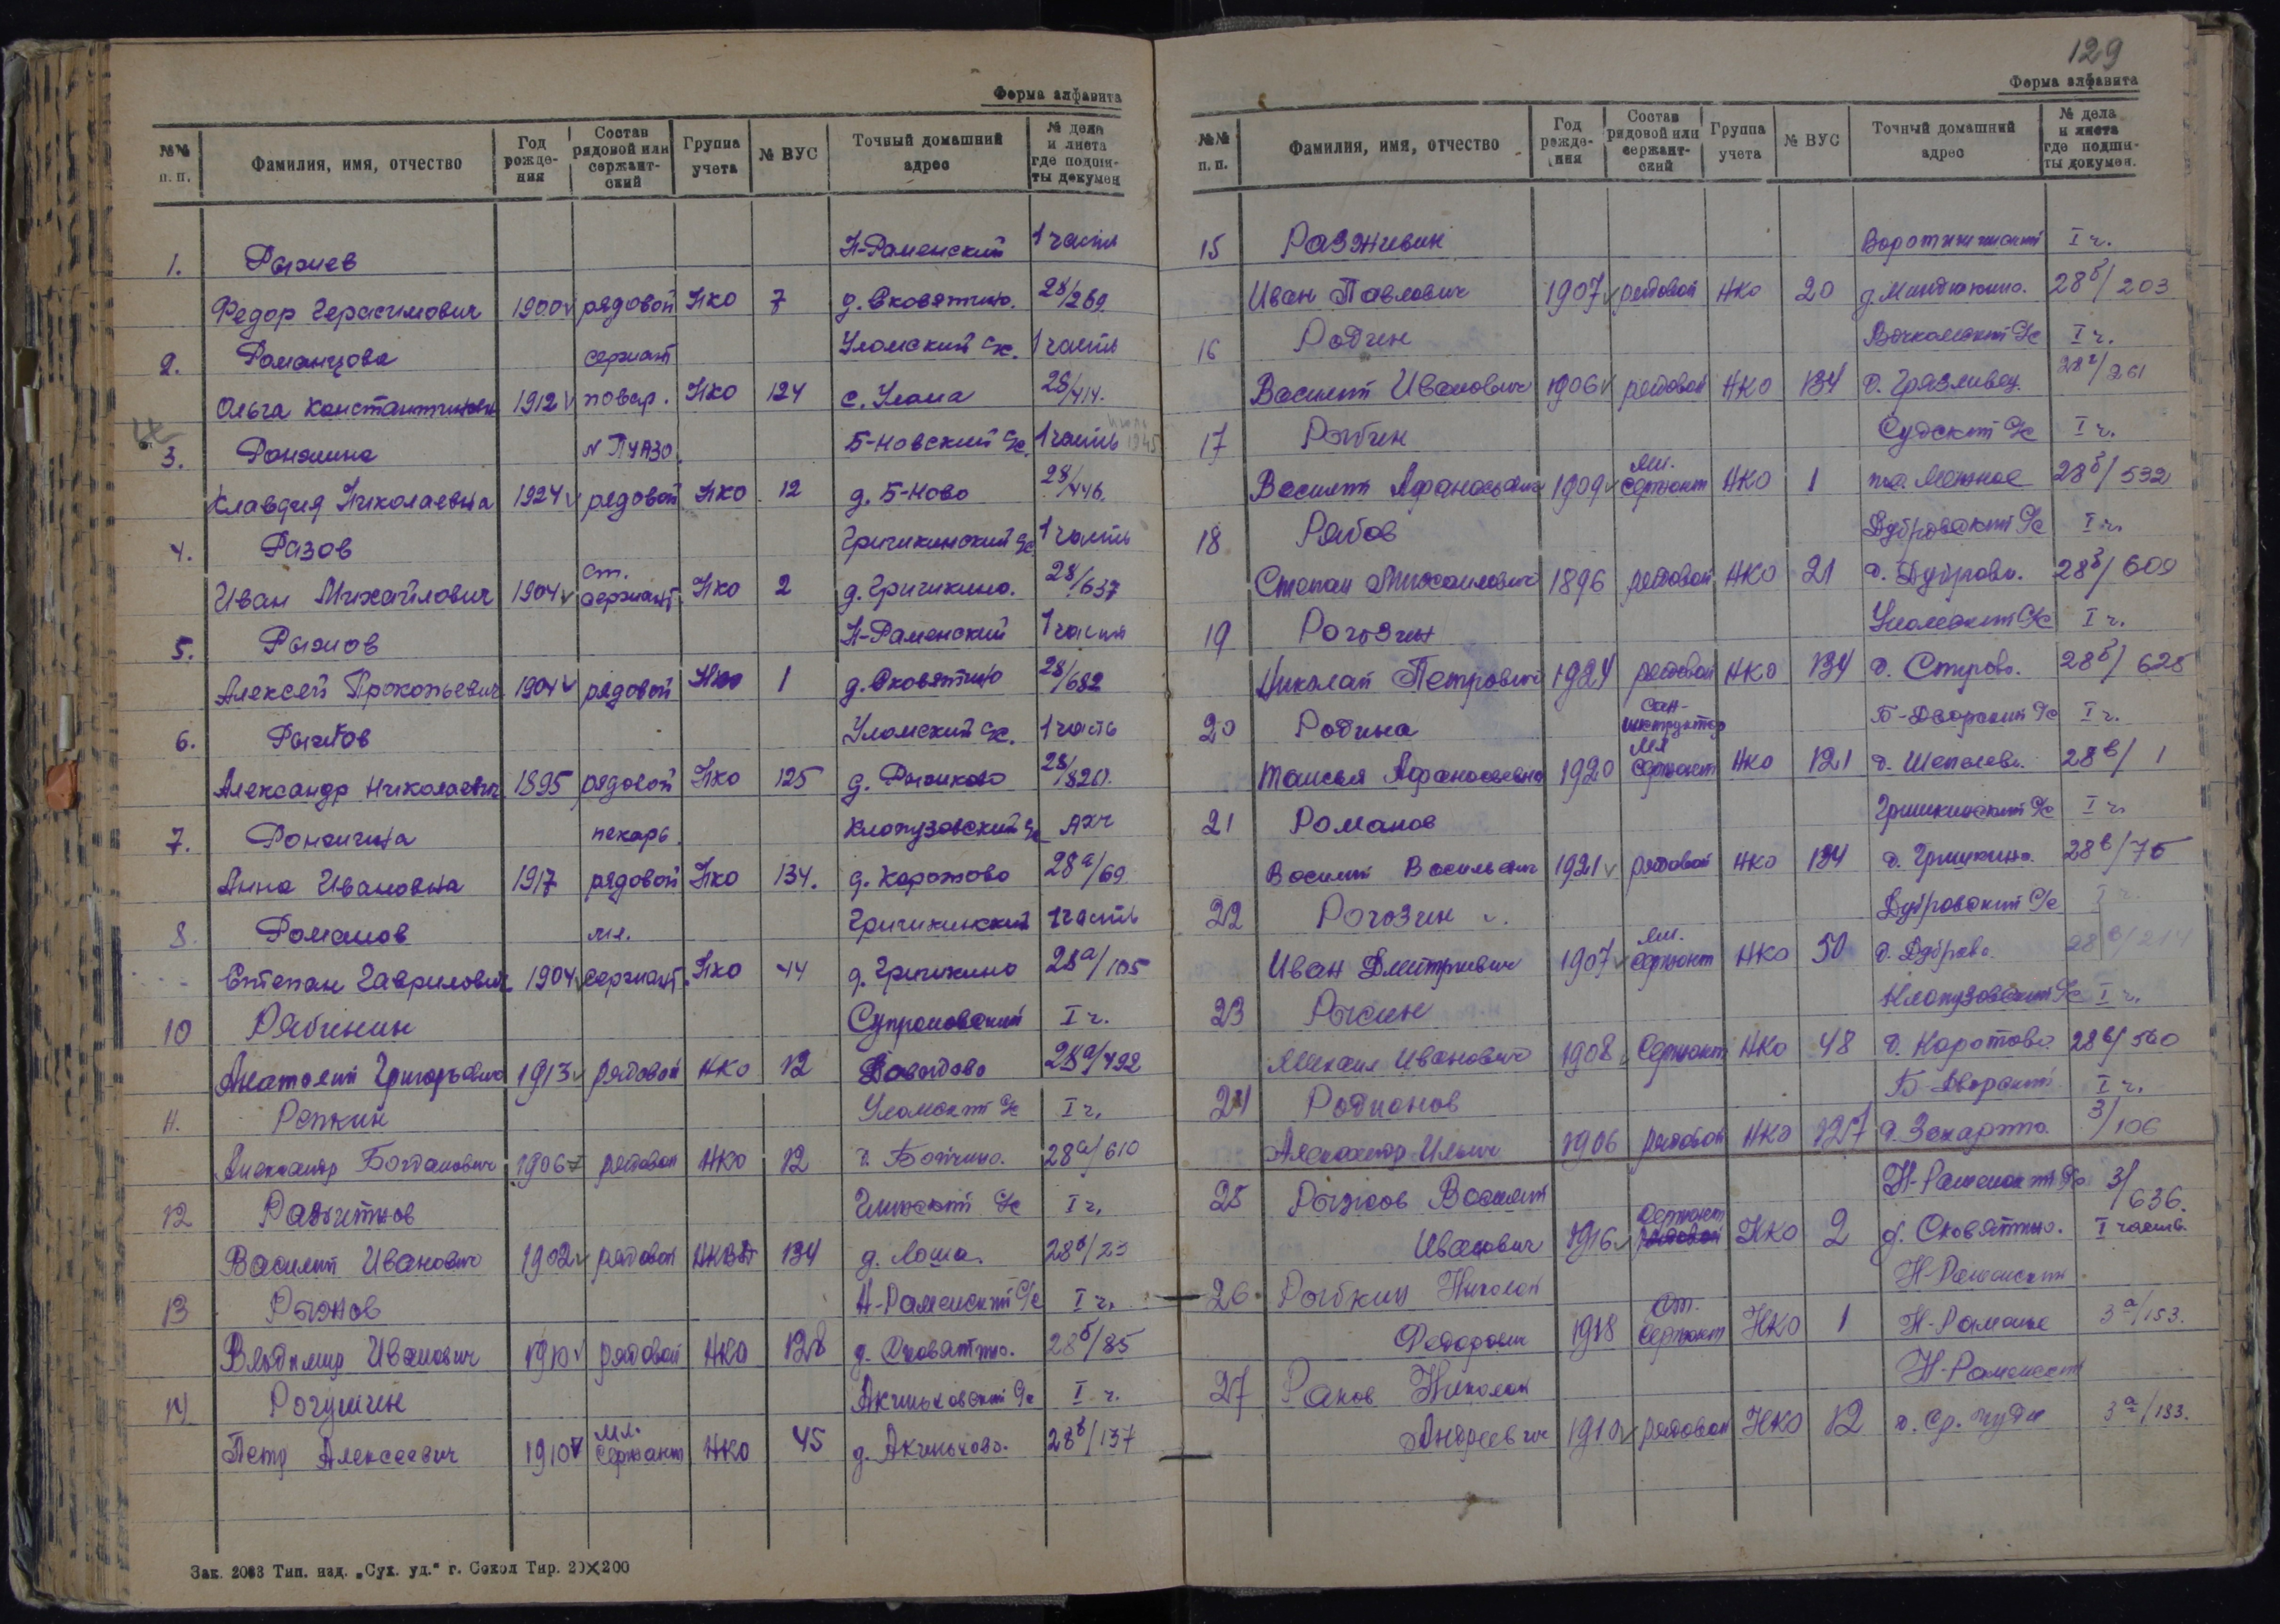 Форма алфавита
№№ п. п.
Фамилия, имя, отчество
Год рожде-ния
Состав рядовой или сержант-ский
Группа учета
№ ВУС
Точный домашний адрес
№ дела и листа где подши-ты докумен
1. Рыжев Н-Раменский 1 часть
Федор Герасимович 1900 рядовой НКО 7 д. Сковятино. 28/269
2. Романцова сержант Уломский с/с. 1 часть
Ольга Константиновна 1912 повар. НКО 124 с. Улома 28/414.
3. Роналина N ПУАЗО. Б-Новский с/с. 1 часть 1945
Клавдия Николаевна 1924 рядовой НКО 12 д. Б-Ново 28/446.
4. Разов Гришкинский с/с 1 часть
Иван Михайлович 1904 ст. сержант НКО 2 д. Гришкино. 28/637
5. Рыжов Н-Раменский 1 часть
Алексей Прокопьевич 1904 рядовой НКО 1 д. Сковятино 28/682
6. Уломский с/с. 1 часть
Александр Николаевич 1895 рядовой НКО 125 д. Рыжково 28/820.
7. пекарь. Клопузовский с/с АХЧ
Анна Ивановна 1917 рядовой НКО 134. д. Коротово 28а/69
8. Романов мл. Гришкинский 1 часть
Степан Гаврилович 1904 сержант. НКО 44 д. Гришкино 28а/105
10 Рябинин Супроновский I ч.
Анатолий Григорьевич 1913 рядовой НКО 12 Давыдово 28а/492
11. Репкин Уломский с/с I ч.
Александр Богданович 1906 рядовой НКО 12 28а/610
12 с/с I ч.
Василий Иванович 1902 рядовой 134 д. Лоша. 28б/23
13 Рыжов Н-Раменский с/с I ч.
Владимир Иванович 1910 рядовой НКО 128 д. Сковятино. 28б/85
14 Рогушин Акиньховский с/с I ч.
Петр Алексеевич 1910 мл. сержант НКО 45 д. Акиньхово. 28б/137
Зак. 2083 Тип. изд. „Сух. уд.“ г. Сокол Тир. 20×200
129
Форма алфавита
№№ п. п.
Фамилия, имя, отчество
Год рожде-ния
Состав рядовой или сержант-ский
Группа учета
№ ВУС
Точный домашний адрес
№ дела и листа где подши-ты докумен.
15 Разживин I ч.
Иван Павлович 1907 рядовой НКО 20 д. Миндюкино. 28б/203
16 Родин с/с I ч.
Василий Иванович 1906 рядовой НКО 134 д. Грязливец 28б/261
17 Рыбин Судский с/с I ч.
Василий Афанасьевич 1909 мл. сержант НКО 1 28б/532
18 Рябов Дубровский с/с I ч.
Степан Михайлович 1896 рядовой НКО 21 д. Дуброва. 28б/609
19 Рогозин Уломский с/с I ч.
Николай Петрович 1924 рядовой НКО 134 28б/628
20 Родина сан-инструктор Б-Дворский с/с I ч.
Таисья Афанасьевна 1920 мл сержант НКО 121 д. Шепелево. 28в/1
21 Романов Гришкинский с/с I ч.
Василий Васильевич 1921 рядовой НКО 134 д. Гришкино. 28в/75
22 Рогозин Дубровский с/с I ч.
Иван Дмитриевич 1907 мл. сержант НКО 50 д. Дуброва. 28в/214
23 Рысин Клопузовский с/с I ч.
Михаил Иванович 1908 сержант НКО 48 д. Коротово. 28в/560
24 Родионов Б-Дворский I ч.
Александр Ильич 1906 рядовой НКО 127 3/106
25 Рыжов Василий Н-Раменский с/с 3/636.
Иванович 1916 сержант рядовой НКО 2 д. Сковятино. I часть
26 Рыбкин Николай Н-Раменский
Федорович 1918 ст. сержант НКО 1 Н-Раменье 3а/153.
27 Раков Николай Н-Раменский
Андреевич 1910 рядовой НКО 12 д. Ср. Чуди 3а/183.